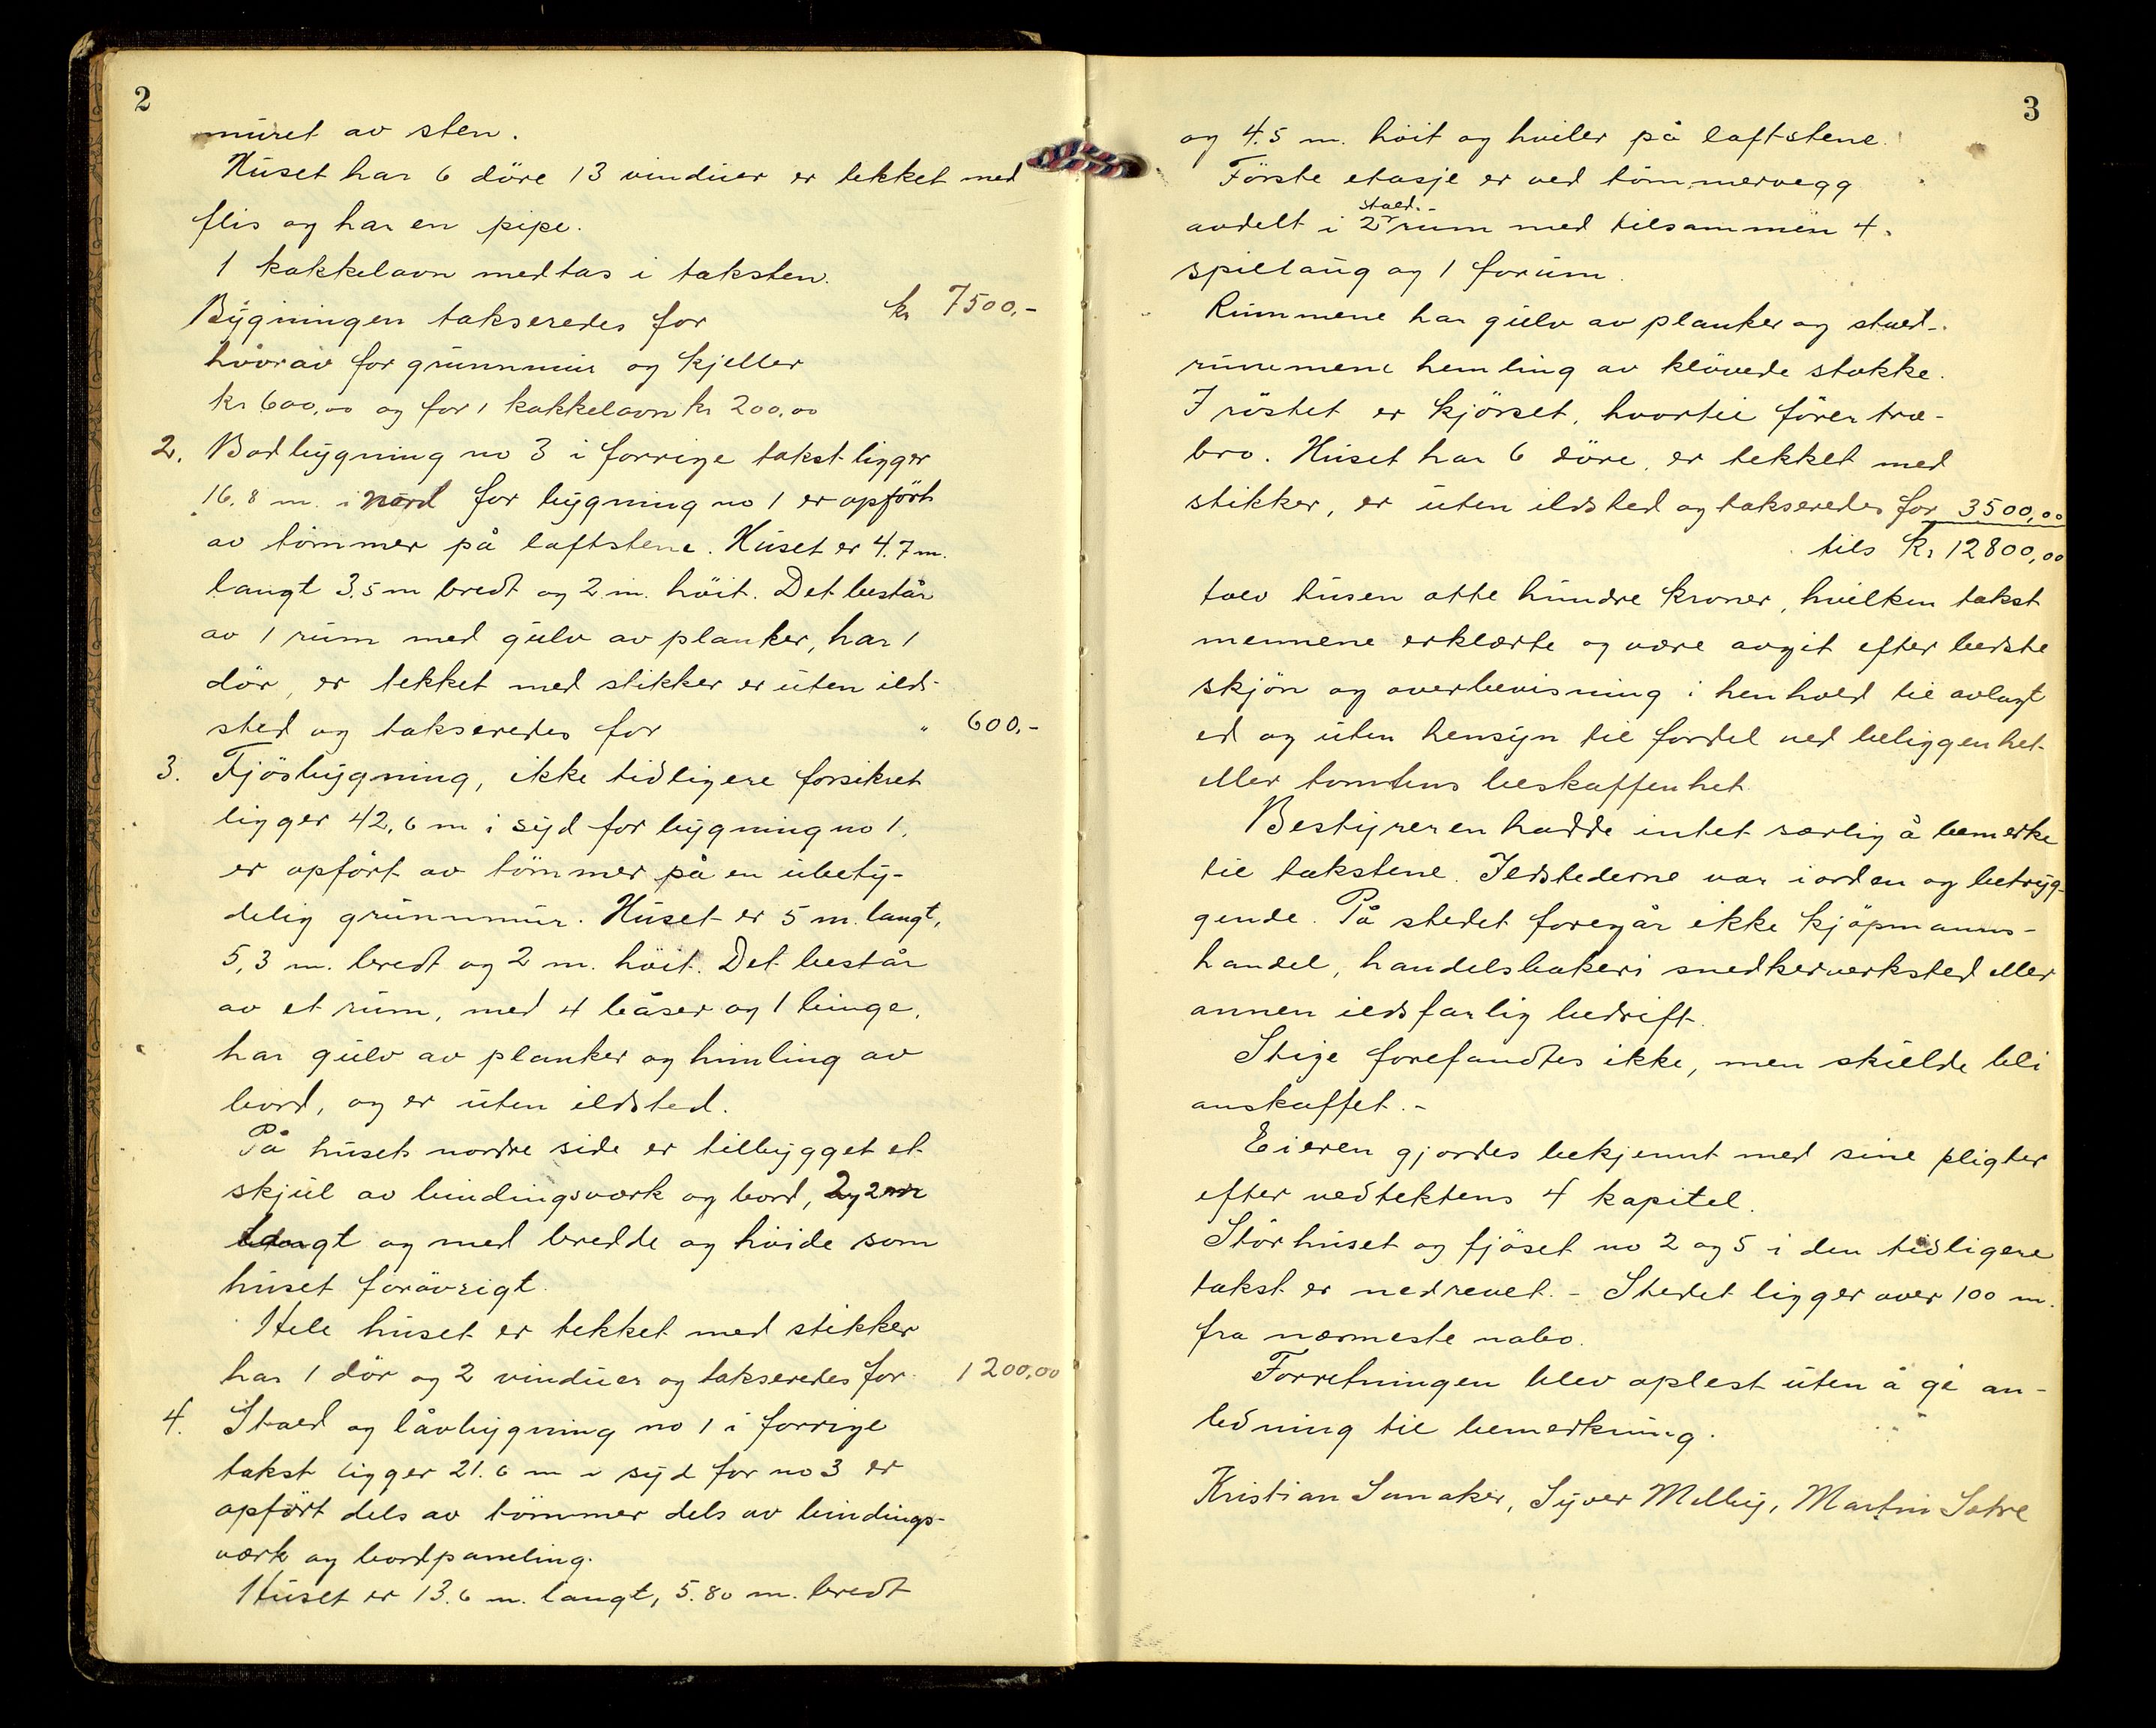 2
muret av sten.
Huset har 6 döre 13 vinduer er tekket med
flis og har en pipe.
1 kakkelovn medtas i taksten.
Bygningen takseredes for kr 7500,-
hvorav for grunnmur og kjeller
kr 600,00 og for 1 kakkelovn kr 200,00
2. Bodbygning no 3 i forrige takst ligger
16,8 m. i nord for bygning no 1 er opfört
av tömmer på laftstene. Huset er 4.7 m.
langt 3.5 m bredt og 2 m. höit. Det består
av 1 rum med gulv av planker, har 1
dör, er tekket med stikker er uten ild-
sted og takseredes for " 600,-
3. Fjösbygning, ikke tidligere forsikret
ligger 42,6 m i syd for bygning no 1,
er opfört av tömmer på en ubety-
delig grunnmur. Huset er 5 m. langt,
5,3 m. bredt og 2 m. höit. Det består
av et rum, med 4 båser og 1 binge,
har gulv av planker og himling av
bord, og er uten ildsted.
På husets nordre side er tilbygget et
skjul av bindingsverk og bord, 2 m
langt og med bredde og höide som
huset forövrigt.
Hele huset er tekket med stikker
har 1 dör og 2 vinduer og takseredes for 1200,00
4. Stald og låvbygning no 1 i forrige
takst ligger 21.6 m i syd for no 3 er
opfört dels av tömmer dels av bindings-
værk og bordpaneling.
Huset er 13.6 m. langt, 5.80 m. bredt
3
og 4.5 m. höit og hviler på laftstene.
Förste etasje er ved tömmervegg
stald-
avdelt i 2 rum med tilsammen 4
spiltaug og 1 forum.
Rummene har gulv av planker og stald-
rummene hemling av klövede stokke.
I röstet er kjörsel, hvortil förer træ-
bro. Huset har 6 döre, er tekket med
stikker, er uten ildsted og takseredes for 3500,00
tils kr 12800,00
tolv tusen otte hundre kroner, hvilken takst
mennene erklærte og være avgit efter bedste
skjön og overbevisning i henhold til avlagt
ed og uten hensyn til fordel ved beliggenhet
eller tomtens beskaffenhet.
Bestyreren hadde intet særlig å bemerke
til takstene. Ildstederne var i orden og betryg-
gende. På stedet foregår ikke kjöpmanns-
handel, handelsbakeri snedkerverksted eller
annen ildsfarlig bedrift.
Stige forefandtes ikke, men skulde bli
anskaffet.-
Eieren gjordes bekjennt med sine pligter
efter vedtektens 4 kapitel.
Störhuset og fjöset no 2 og 5 i den tidligere
takst er nedrevet. - Stedet ligger over 100 m.
fra nærmeste nabo.
Forretningen blev oplest uten å gi an-
ledning til bemerkning.
Kristian Sanaker, Syver Melby, Martin Sætre